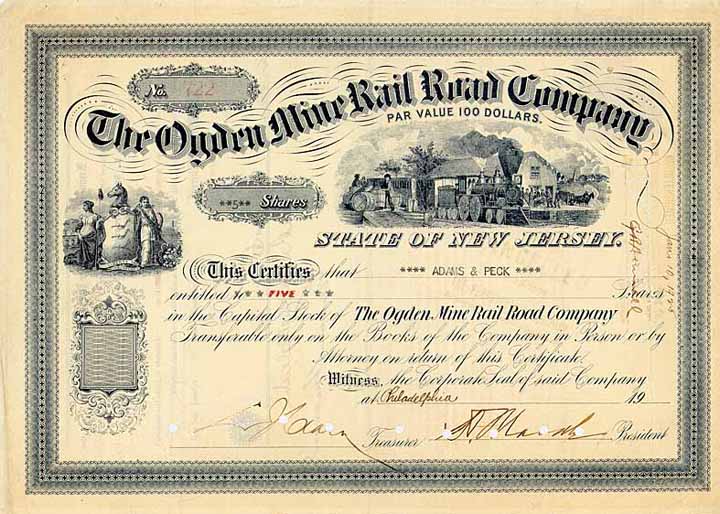 No. 422
The Ogden Mine Rail Road Company
PAR VALUE 100 DOLLARS.
**5** Shares
STATE OF NEW JERSEY.
This Certifies that **** ADAMS & PECK ****
entitled to ** FIVE *** Shares
in the Capital Stock of The Ogden Mine Rail Road Company
Transferable only on the Books of the Company in Person or by
Attorney on return of this Certificate.
Witness, the Corporate Seal of said Company
at Philadelphia 19
Treasurer President